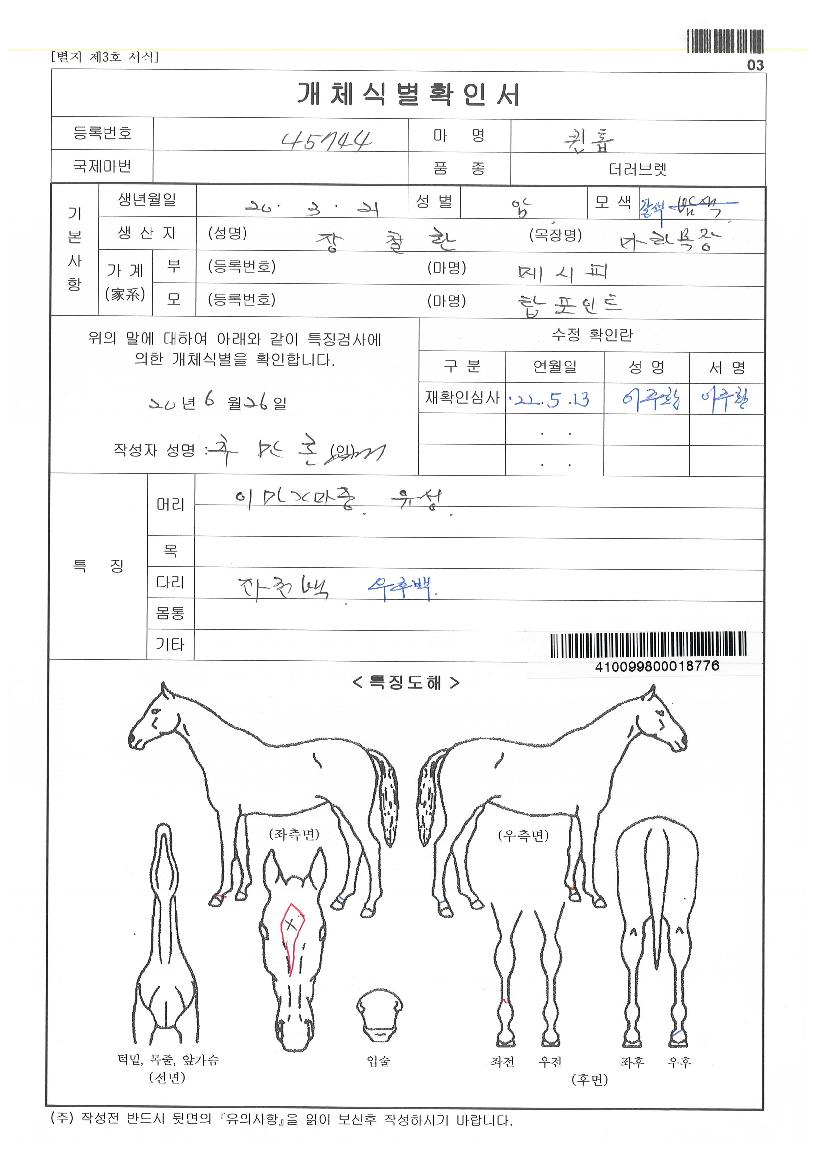 [별지 제3호 서식]
03
개체식별확인서
등록번호 45744 마 명 퀸홉
국제마번 품 종 더러브렛
기본사항
생년월일 20. 3. 21 성 별 암 모 색 갈색 밤색
생 산 지 (성명) 장 철 한 (목장명) 목장
가 계 (家系) 부 (등록번호) (마명) 메시피
모 (등록번호) (마명) 합포인트
위의 말에 대하여 아래와 같이 특징검사에
의한 개체식별을 확인합니다.
20년 6월 26일
작성자 성명 : (인)
수정 확인란
구 분 연월일 성 명 서 명
재확인심사 22. 5. 13
. .
. .
특 징
머리 유성.
목
다리 좌전백. 우후백.
몸통
기타
410099800018776
< 특징도해 >
(좌측면) (우측면)
턱밑, 목줄, 앞가슴 입술 좌전 우전 좌후 우후
(선면) (후면)
(주) 작성전 반드시 뒷면의 『유의사항』을 읽어 보신후 작성하시기 바랍니다.